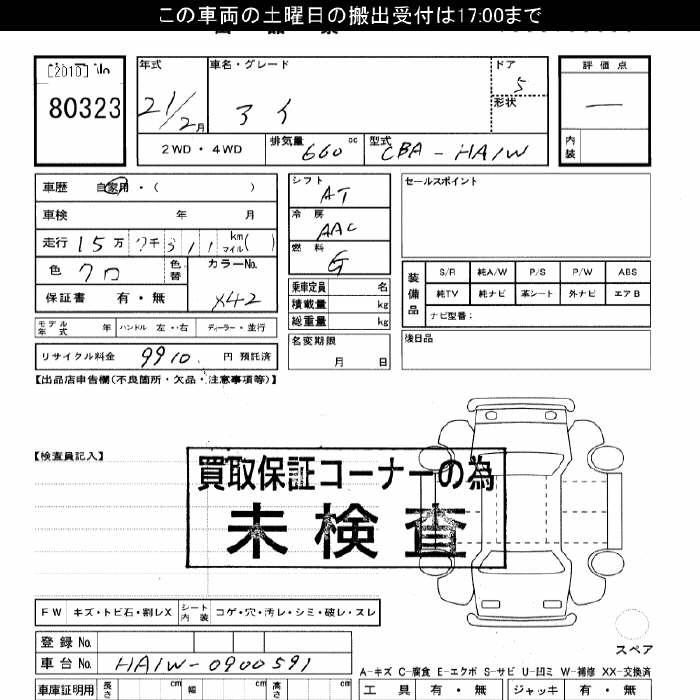 この車両の土曜日の搬出受付は17:00まで
[2010] No
80323
年式 車名・グレード ドア 評価点
21/2月 アイ 5 —
形状
2WD・4WD 排気量 660 cc 型式 CBA-HA1W 内装
車歴 自家用・( )
シフト AT
セールスポイント
車検 年 月
冷房 AAC
走行 15万7千311 km マイル( )
燃料 G
色 クロ 色替 カラーNo. X42
装備品 S/R 純A/W P/S P/W ABS
乗車定員 名
純TV 純ナビ 革シート 外ナビ エアB
保証書 有・無
積載量 kg
ナビ型番:
総重量 kg
モデル年式 年 ハンドル 左・右 ディーラー・並行
名変期限 月 日
後日品
リサイクル料金 9910 円 預託済
【出品店申告欄(不良箇所・欠品・注意事項等)】
【検査員記入】
買取保証コーナーの為
未検査
FW キズ・トビ石・割レX シート内装 コゲ・穴・汚レ・シミ・破レ・スレ
登録No.
スペア
車台No. HA1W-0900591
A-キズ C-腐食 E-エクボ S-サビ U-凹ミ W-補修 XX-交換済
車庫証明用 長さ cm 幅 cm 高さ cm 工具 有・無 ジャッキ 有・無